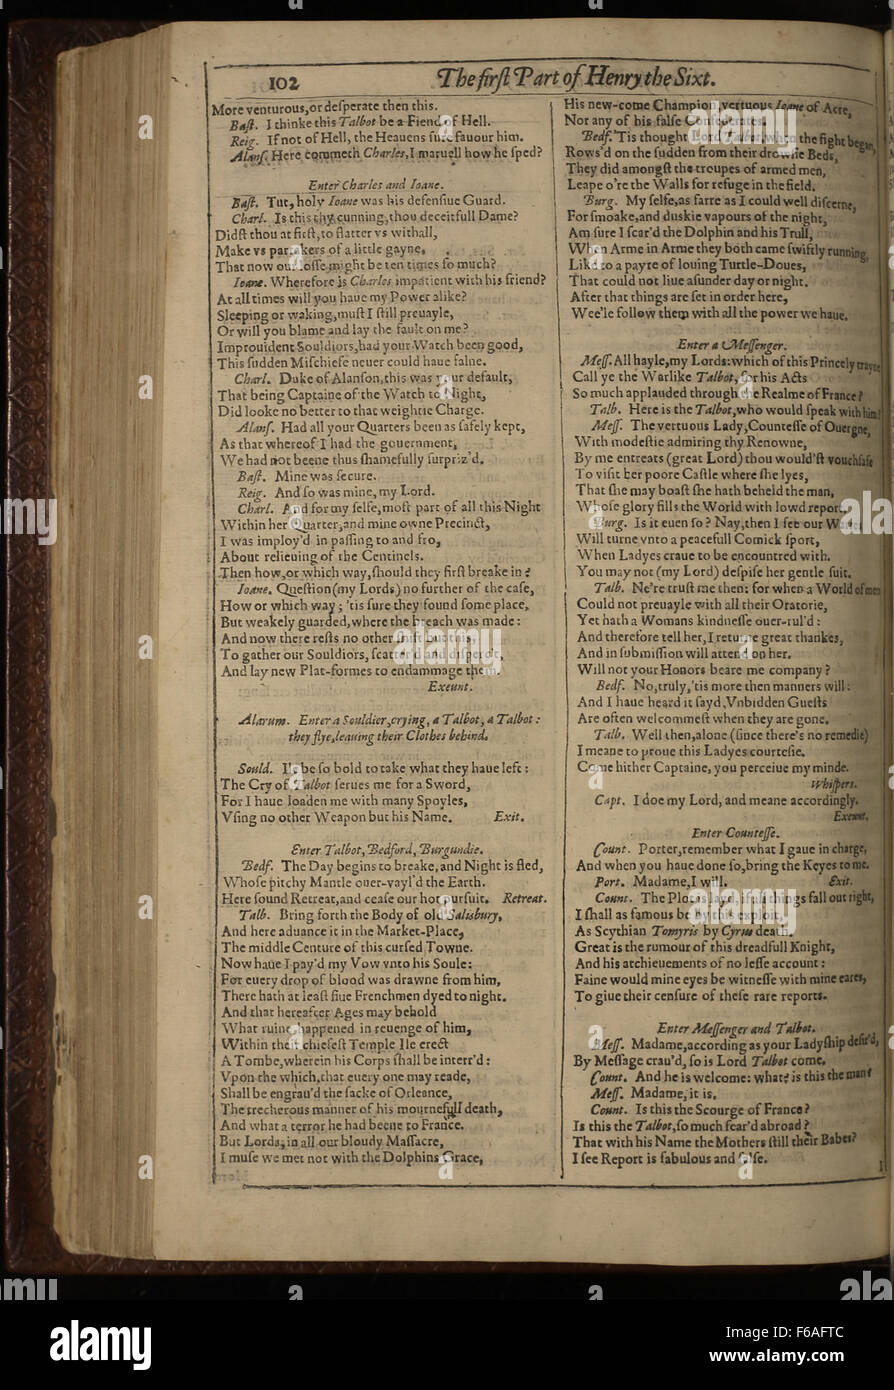 102
The firſt Part of Henry the Sixt.
More venturous, or deſperate then this.
Baſt. I thinke this Talbot be a Fiend of Hell.
Reig. If not of Hell, the Heauens ſure fauour him.
Alanſ. Here commeth Charles, I maruell how he ſped?
Enter Charles and Ioane.
Baſt. Tut, holy Ioane was his defenſiue Guard.
Charl. Is this thy cunning, thou deceitfull Dame?
Didſt thou at firſt, to flatter vs withall,
Make vs partakers of a little gayne,
That now our loſſe might be ten times ſo much?
Ioane. Wherefore is Charles impatient with his friend?
At all times will you haue my Power alike?
Sleeping or waking, muſt I ſtill preuayle,
Or will you blame and lay the fault on me?
Improuident Souldiors, had your Watch been good,
This ſudden Miſchiefe neuer could haue falne.
Charl. Duke of Alanſon, this was your default,
That being Captaine of the Watch to Night,
Did looke no better to that weightie Charge.
Alanſ. Had all your Quarters been as ſafely kept,
As that whereof I had the gouernment,
We had not beene thus ſhamefully ſurpriz'd.
Baſt. Mine was ſecure.
Reig. And ſo was mine, my Lord.
Charl. And for my ſelfe, moſt part of all this Night
Within her Quarter, and mine owne Precinct,
I was imploy'd in paſſing to and fro,
About relieuing of the Centinels.
Then how, or which way, ſhould they firſt breake in?
Ioane. Queſtion (my Lords) no further of the caſe,
How or which way; 'tis ſure they found ſome place,
But weakely guarded, where the breach was made:
And now there reſts no other ſhift but this,
To gather our Souldiors, ſcatter'd and diſperc't,
And lay new Plat-formes to endammage them.
Exeunt.
Alarum. Enter a Souldier, crying, a Talbot, a Talbot:
they flye, leauing their Clothes behind.
Sould. Ile be ſo bold to take what they haue left:
The Cry of Talbot ſerues me for a Sword,
For I haue loaden me with many Spoyles,
Vſing no other Weapon but his Name. Exit.
Enter Talbot, Bedford, Burgundie.
Bedf. The Day begins to breake, and Night is fled,
Whoſe pitchy Mantle ouer-vayl'd the Earth.
Here ſound Retreat, and ceaſe our hot purſuit. Retreat.
Talb. Bring forth the Body of old Salisbury,
And here aduance it in the Market-Place,
The middle Centure of this curſed Towne.
Now haue I pay'd my Vow vnto his Soule:
For euery drop of blood was drawne from him,
There hath at leaſt fiue Frenchmen dyed to night.
And that hereafter Ages may behold
What ruine happened in reuenge of him,
Within their chiefeſt Temple Ile erect
A Tombe, wherein his Corps ſhall be interr'd:
Vpon the which, that euery one may reade,
Shall be engrau'd the ſacke of Orleance,
The trecherous manner of his mournefull death,
And what a terror he had beene to France.
But Lords, in all our bloudy Maſſacre,
I muſe we met not with the Dolphins Grace,
His new-come Champion, vertuous Ioane of Acre,
Nor any of his falſe Confederates.
Bedf. 'Tis thought Lord Talbot, when the fight began,
Rows'd on the ſudden from their drowſie Beds,
They did amongſt the troupes of armed men,
Leape o're the Walls for refuge in the field.
Burg. My ſelfe, as farre as I could well diſcerne,
For ſmoake, and duskie vapours of the night,
Am ſure I ſcar'd the Dolphin and his Trull,
When Arme in Arme they both came ſwiftly running,
Like to a payre of louing Turtle-Doues,
That could not liue aſunder day or night.
After that things are ſet in order here,
Wee'le follow them with all the power we haue.
Enter a Meſſenger.
Meſſ. All hayle, my Lords: which of this Princely trayne
Call ye the Warlike Talbot, for his Acts
So much applauded through the Realme of France?
Talb. Here is the Talbot, who would ſpeak with him?
Meſſ. The vertuous Lady, Counteſſe of Ouergne,
With modeſtie admiring thy Renowne,
By me entreats (great Lord) thou would'ſt vouchſafe
To viſit her poore Caſtle where ſhe lyes,
That ſhe may boaſt ſhe hath beheld the man,
Whoſe glory fills the World with lowd report.
Burg. Is it euen ſo? Nay, then I ſee our Warres
Will turne vnto a peacefull Comick ſport,
When Ladyes craue to be encountred with.
You may not (my Lord) deſpiſe her gentle ſuit.
Talb. Ne're truſt me then: for when a World of men
Could not preuayle with all their Oratorie,
Yet hath a Womans kindneſſe ouer-rul'd:
And therefore tell her, I returne great thankes,
And in ſubmiſſion will attend on her.
Will not your Honors beare me company?
Bedf. No, truly, 'tis more then manners will:
And I haue heard it ſayd, Vnbidden Gueſts
Are often welcommeſt when they are gone.
Talb. Well then, alone (ſince there's no remedie)
I meane to proue this Ladyes courteſie.
Come hither Captaine, you perceiue my minde.
Whiſpers.
Capt. I doe my Lord, and meane accordingly.
Exeunt.
Enter Counteſſe.
Count. Porter, remember what I gaue in charge,
And when you haue done ſo, bring the Keyes to me.
Port. Madame, I will. Exit.
Count. The Plot is layd, if all things fall out right,
I ſhall as famous be by this exploit,
As Scythian Tomyris by Cyrus death.
Great is the rumour of this dreadfull Knight,
And his atchieuements of no leſſe account:
Faine would mine eyes be witneſſe with mine eares,
To giue their cenſure of theſe rare reports.
Enter Meſſenger and Talbot.
Meſſ. Madame, according as your Ladyſhip deſir'd,
By Meſſage crau'd, ſo is Lord Talbot come.
Count. And he is welcome: what? is this the man?
Meſſ. Madame, it is.
Count. Is this the Scourge of France?
Is this the Talbot, ſo much fear'd abroad?
That with his Name the Mothers ſtill their Babes?
I ſee Report is fabulous and falſe.
alamy
Image ID: F6AFTC
www.alamy.com